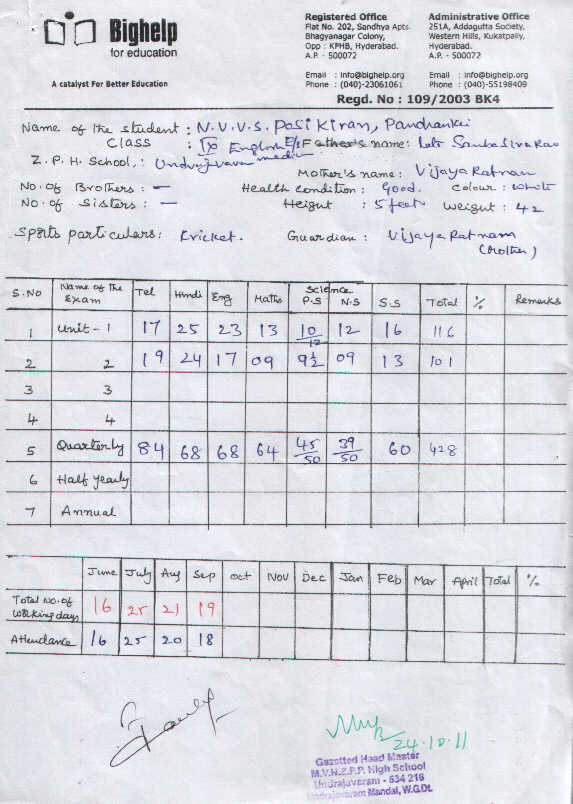 Bighelp
for education
A catalyst For Better Education
Registered Office
Flat No. 202, Sandhya Apts.
Bhagyanagar Colony,
Opp : KPHB, Hyderabad.
A.P. - 500072
Email : info@bighelp.org
Phone : (040)-23061061
Administrative Office
251A, Addagutta Society,
Western Hills, Kukatpally,
Hyderabad.
A.P. - 500072
Email : info@bighelp.org
Phone : (040)-55198409
Regd. No : 109/2003 BK4
Name of the student : N.V.V.S. Posi Kiran, Pandranki
Class : IX English Father's name: Late Samba Siva Rao
Z.P.H. School,: Undrajavaram media
Mother's name : Vijaya Ratnam
No. of Brothers : — Health Condition : Good. Colour : White
No. of Sisters : — Height : 5 feet Weight : 42
Sports particulars: Cricket. Guardian : Vijaya Ratnam
(Mother)
S.No Name of the Exam Tel Hindi Eng Maths Science P.S N.S S.S Total % Remarks
1 Unit - 1 17 25 23 13 10/12 12 16 116
2 2 19 24 17 09 9½ 09 13 101
3 3
4 4
5 Quarterly 84 68 68 64 45/50 39/50 60 428
6 Half yearly
7 Annual
June July Aug Sep Oct Nov Dec Jan Feb Mar April Total %
Total No. of Working days 16 25 21 19
Attendance 16 25 20 18
24.10.11
Gazetted Head Master
M.V.N.Z.P.P. High School
Undrajavaram - 534 216
Undrajavaram Mandal, W.G.Dt.